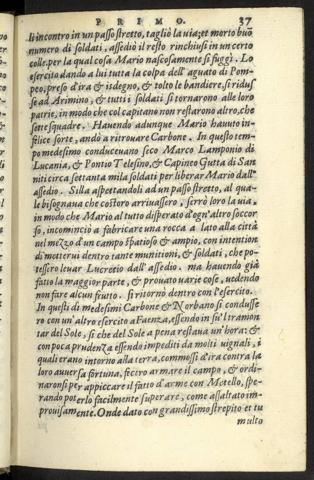 PRIMO. 37
li incontro in un passo stretto, tagliò la uia; et morto buõ
numero di soldati, assediò il resto rinchiusi in un certo
colle. per la qual cosa Mario nascosamente si fuggì. Lo
esercito dando a lui tutta la colpa dell'aguato di Pom-
peo, preso d'ira & isdegno, & tolto le bandiere, si ridus
se ad Arimino, & tutti i soldati si tornarono alle loro
patrie, in modo che col capitano non restarono altro, che
sette squadre. Hauendo adunque Mario hauuto in-
felice sorte, andò a ritrouare Carbone. In questo tem-
po medesimo conduceuano seco Marco Lamponio di
Lucania, & Pontio Telesino, & Capineo Gutta di San
niti circa settanta mila soldati per liberar Mario dall'
assedio. Silla aspettandoli ad un passo stretto, al qua-
le bisognaua che costoro arriuassero, serrò loro la uia,
in modo che Mario al tutto disperato d'ogn'altro soccor
so, incominciò a fabricare una rocca a lato alla città
nel mezzo d'un campo spatioso & ampio, con intention
di metterui dentro tante munitioni, & soldati, che po-
tessero leuar Lucretio dall'assedio. ma hauendo già
fatto la maggior parte, & prouato uarie cose, uedendo
non fare alcun frutto. si ritornò dentro con l'esercito.
In questi dì medesimi Carbone & Norbano si condusse
ro con un'altro esercito a Faenza, essendo in su'l tramon
tar del Sole, si che del Sole a pena restaua un'hora: &
con poca prudenza essendo impediti da molti uignali, i
quali erano intorno alla terra, commossi d'ira contra la
loro auuersa fortuna, fecero armare il campo, & ordi-
naronsi per appiccare il fatto d'arme con Metello, spe-
rando poterlo facilmente superare, come assaltato im-
prouisamente. Onde dato con grandissimo strepito et tu
multo